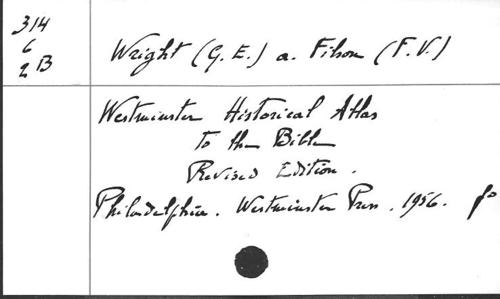 314
6
2B
Wright (G. E.) a. Filson (F. V.)
Westminster Historical Atlas
to the Bible
Revised Edition.
Philadelphia. Westminster Press. 1956. fo